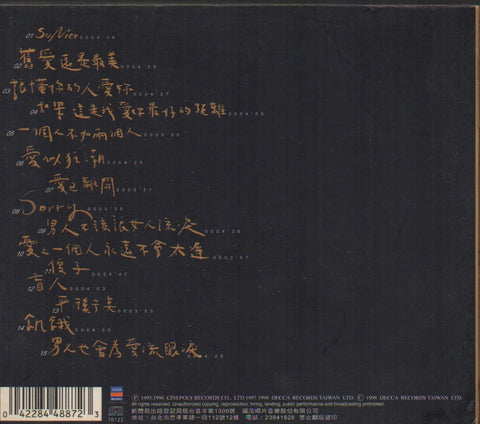 01 So Nice 0004'10
02 舊愛還是最美 0004'09
03 讓懂你的人愛你 0004'27
04 如果這是我愛你最好的距離 0004'55
05 一個人不如兩個人 0005'00
06 愛似狂潮 0004'20
07 愛已離開 0005'21
08 Sorry 0004'30
09 男人不該讓女人流淚 0004'38
10 愛上一個人永遠不會太遲 0003'57
11 傻子 0004'47
12 盲人 0004'02
13 0003'50
14 飢餓 0004'00
15 男人也會為愛流眼淚 4'25
0 42284 48872 3
DECCA
70122
Ⓟ 1995.1996 CINEPOLY RECORDS CO., LTD.1997.1998 DECCA RECORDS TAIWAN LTD. Ⓒ 1998 DECCA RECORDS TAIWAN LTD.
All rights reserved. Unauthorized copying, reproduction, hiring, lending, public performance and broadcasting prohibited.
新聞局出版登記局版台音字第1300號 福茂唱片音樂股份有限公司
地址:台北市忠孝東路一段112號12樓 電話:23941828 版權所有.翻錄必究
印製